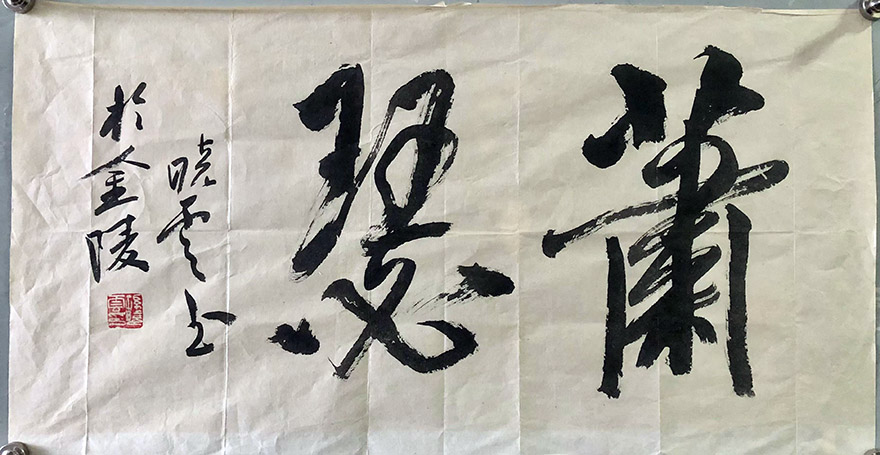 萧瑟
晓云书
於金陵